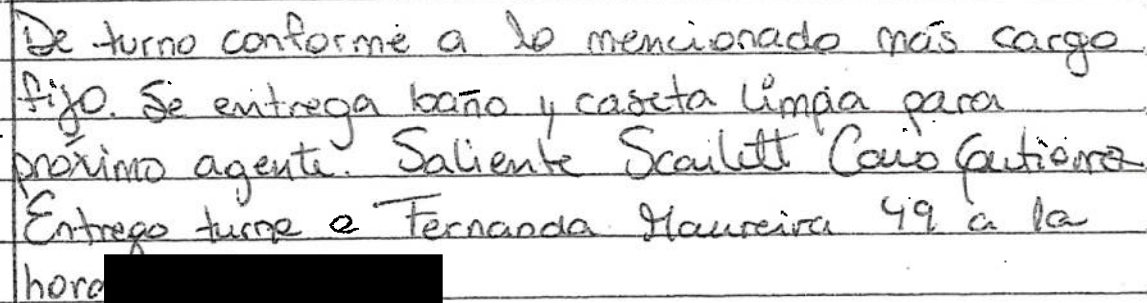 De turno conforme a lo mencionado más cargo
fijo. Se entrega baño y caseta limpia para
próximo agente. Saliente Scailett
Entrego turno a Fernanda Maureira 49 a la
hora